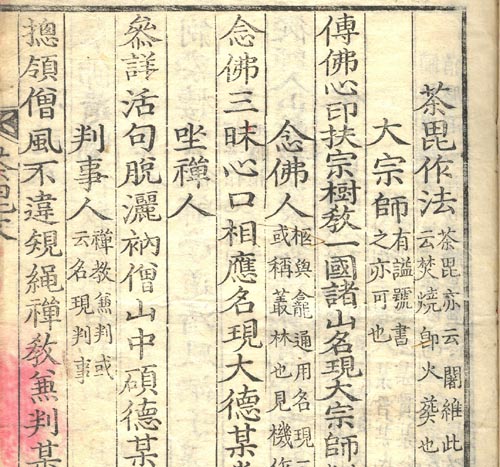 茶毘作法 茶毘亦云闍維此云焚燒卽火葬也
大宗師 有謚號書之亦可也
傳佛心印扶宗樹敎一國諸山名現大宗師
念佛人 柩與龕通用名現或稱叢林也見機作
念佛三昧心口相應名現大德某
坐禪人
叅詳活句脫灑衲僧山中碩德某
判事人 禪教兼判或云名現判事
摠領僧風不違規繩禪敎兼判某